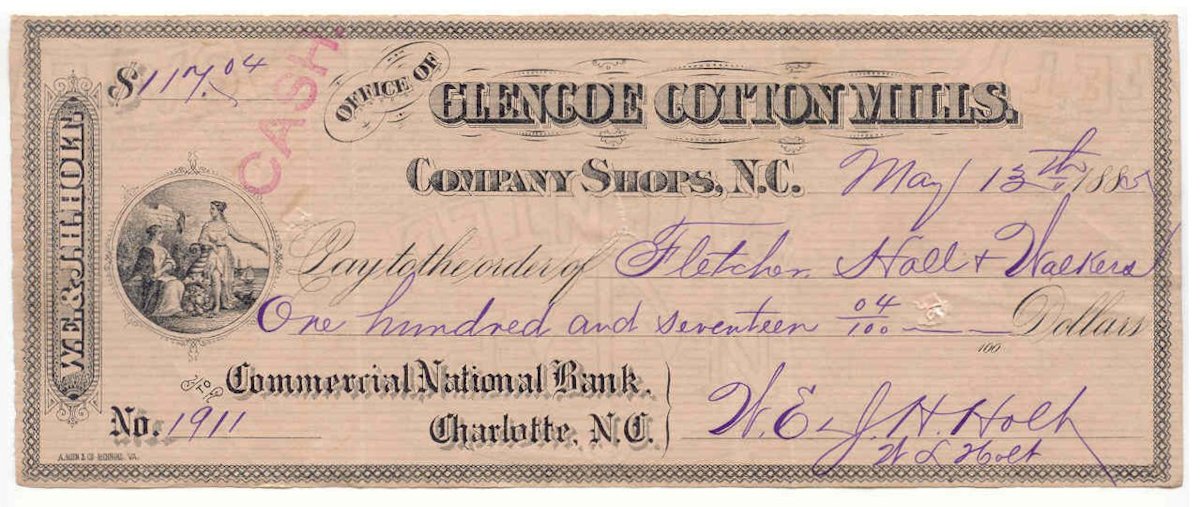 $117.04
CASH
OFFICE OF
GLENCOE COTTON MILLS.
COMPANY SHOPS, N.C. May 13th 1885
W.E. & J.H. HOLT
Pay to the order of Fletcher Hall & Walkers
One hundred and seventeen 04/100 Dollars
100
To Commercial National Bank,
Charlotte, N.C.
No. 1911
W. E. & J. H. Holt
W L Holt
A. HOEN & CO. RICHMOND, VA.